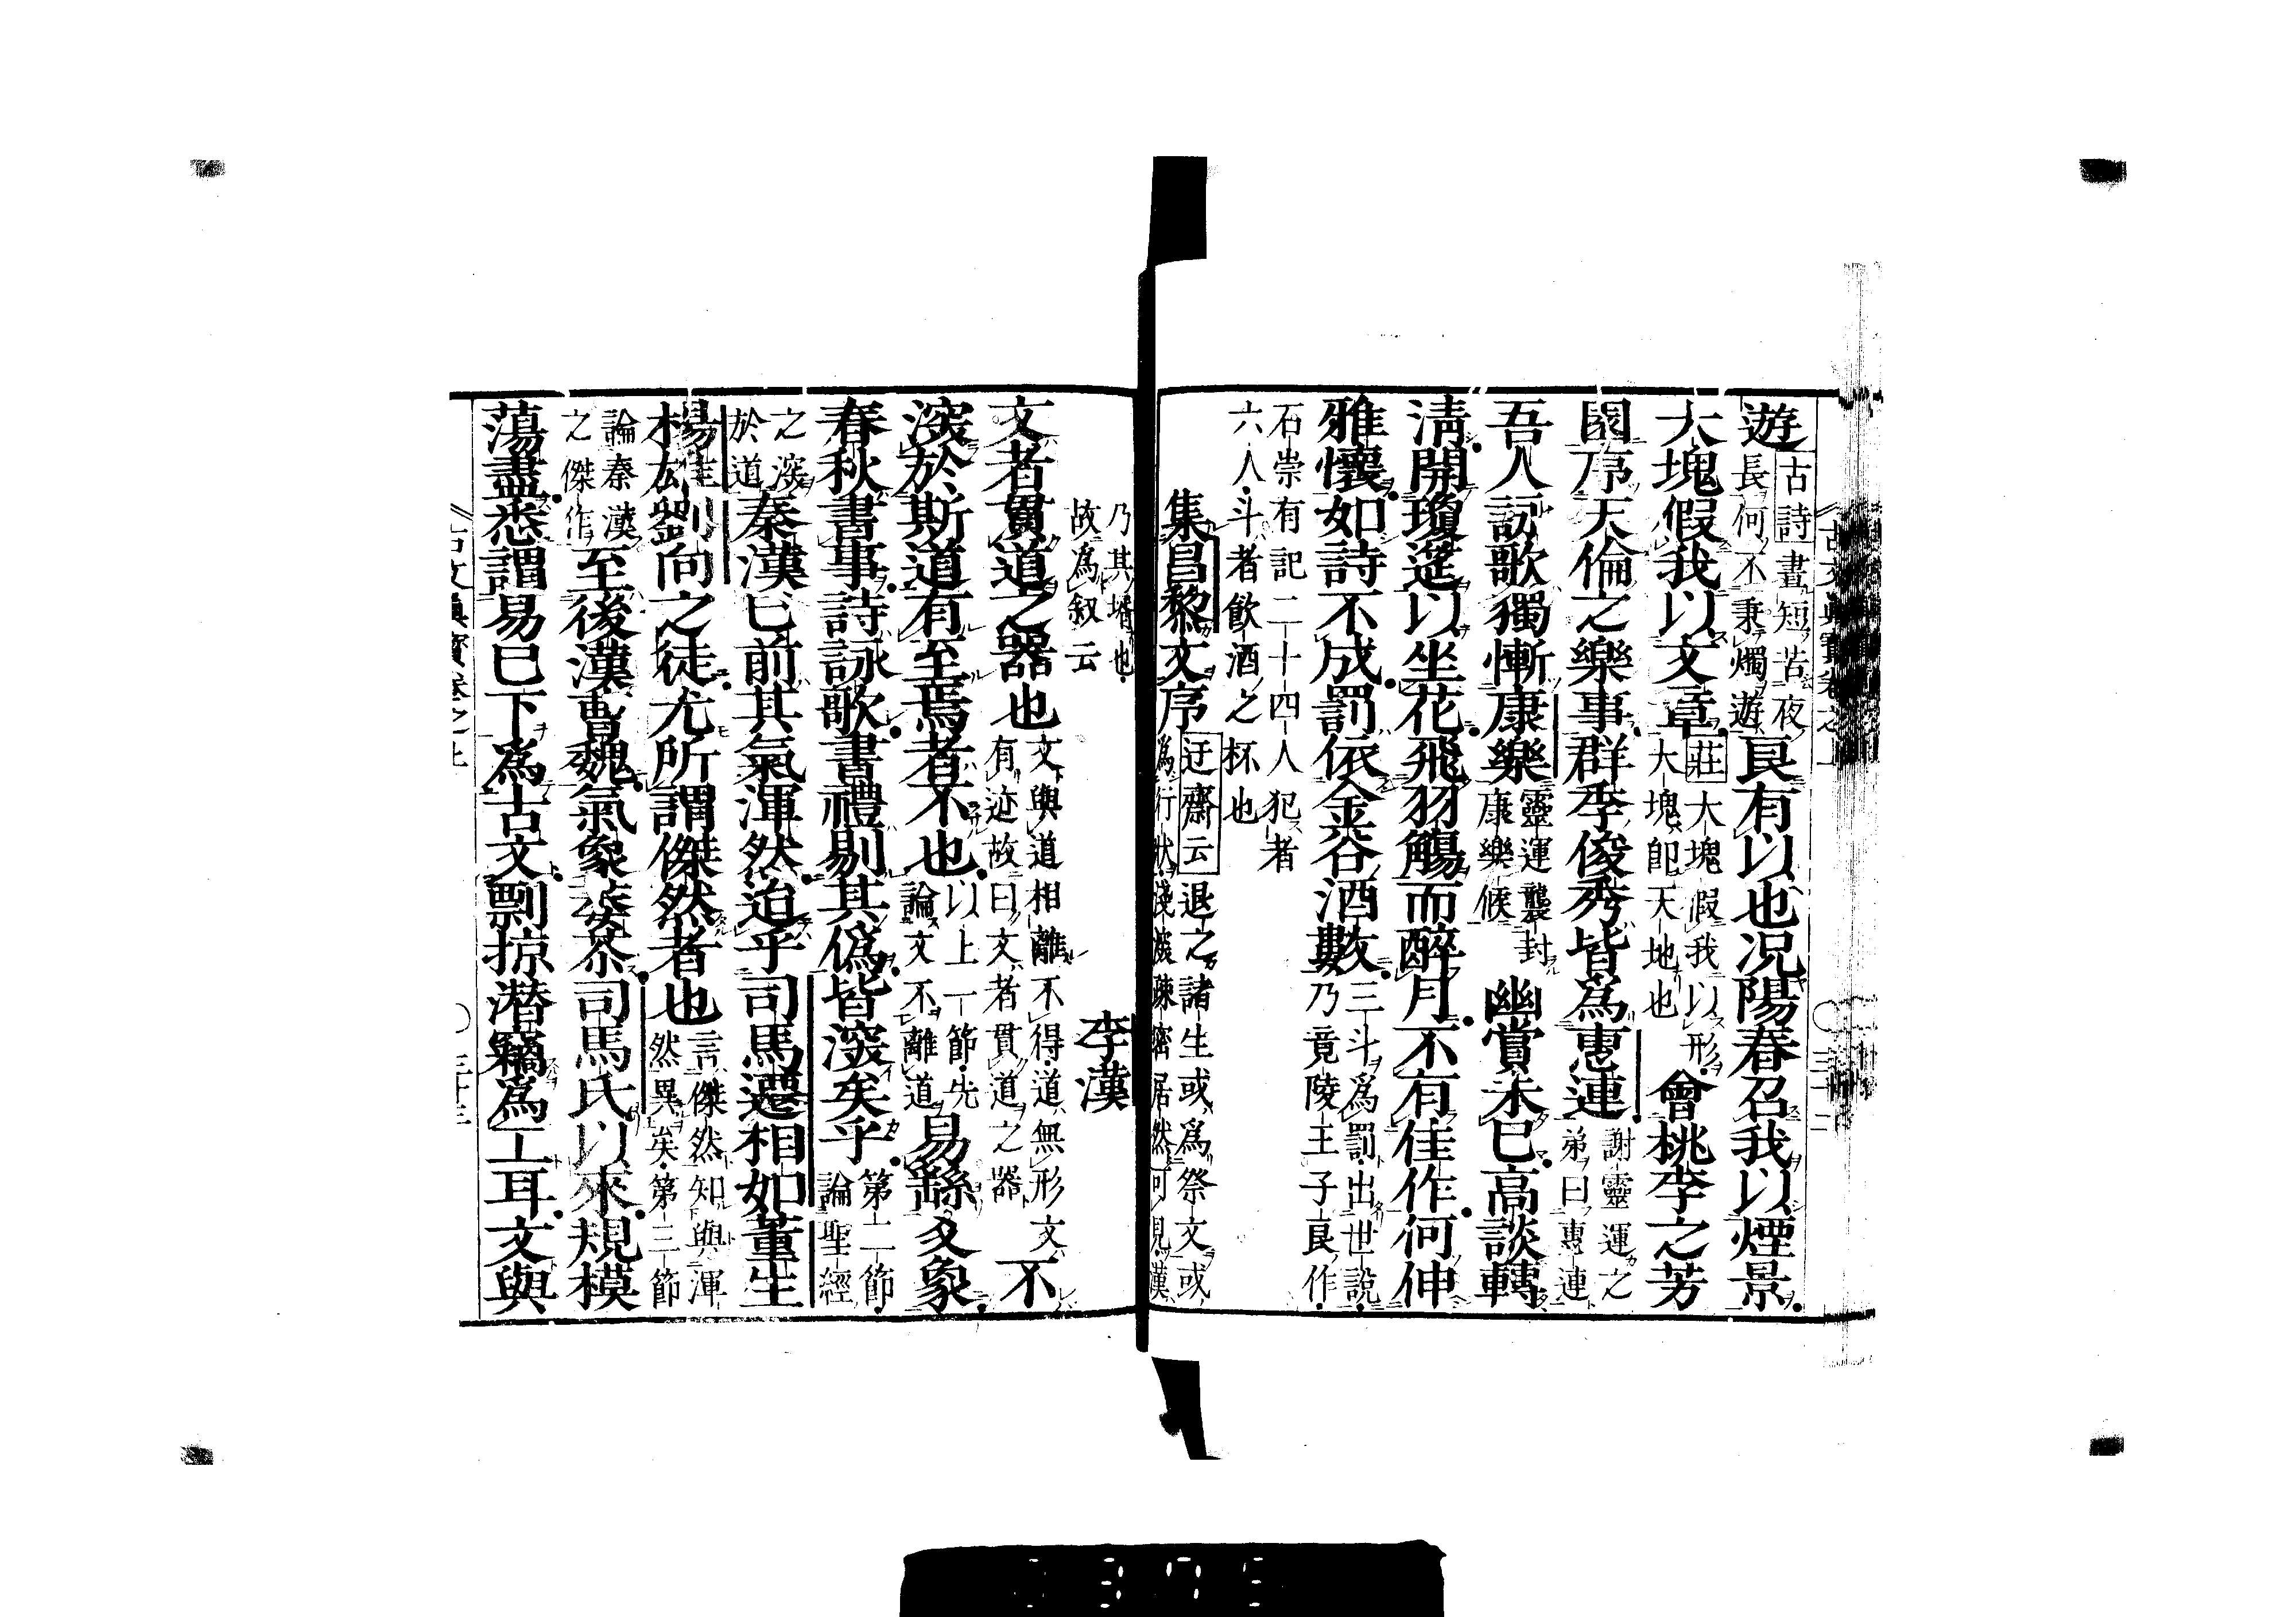 遊古詩晝短苦夜長何不秉燭遊良有以也况陽春召我以煙景
大塊假我以文章莊大塊假我以形大塊卽天地也會桃李之芳
園序天倫之樂事群季俊秀皆爲惠連謝靈運之弟曰惠連
吾人詠歌獨慚康樂靈運襲封康樂候幽賞未已高談轉
淸開瓊筵以坐花飛羽觴而醉月不有佳作何伸
雅懷如詩不成罰依金谷酒數三斗爲罰出世說乃竟陵王子良作
石崇有記二十四人犯者六人斗者飮酒之杯也
集昌黎文序迂齋云退之諸生或爲祭文或爲行狀淺深疎密居然可見漢
乃其壻也故爲叙云　李漢
文者貫道之器也文與道相離不得道無形文有迹故曰文者貫道之器不
深於斯道有至焉者不也以上一節先論文不離道易繇爻象
春秋書事詩詠歌書禮剔其僞皆深矣乎第二節論聖經
之深於道秦漢已前其氣渾然迨乎司馬遷相如董生
楊雄劉向之徒尤所謂傑然者也言傑然知與渾然異矣第三節
論秦漢之傑作至後漢曹魏氣象萎苶司馬氏以來規模
蕩盡悉謂易已下爲古文剽掠潛竊爲工耳文與